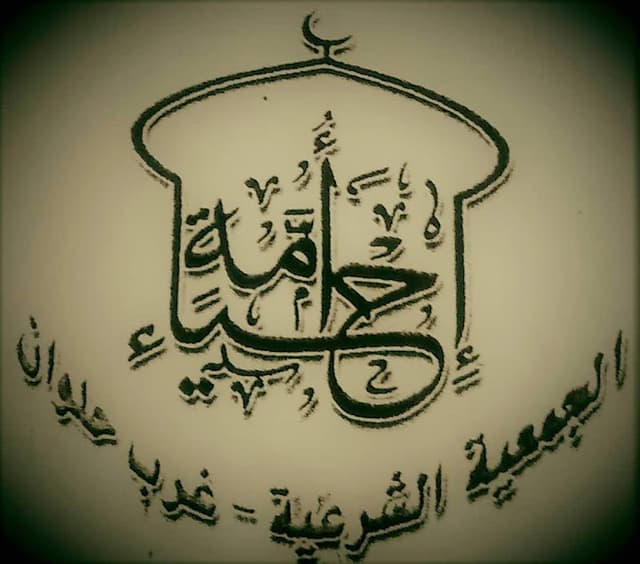 إحياء أمة
الجمعية الشرعية - غرب حلوان